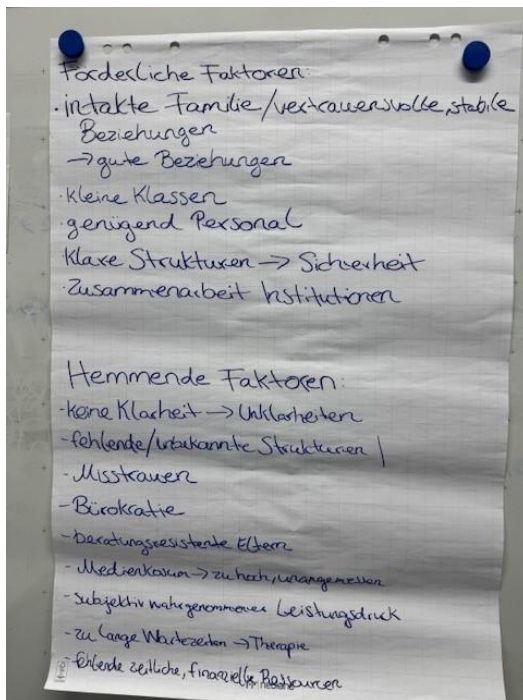 Förderliche Faktoren:
· intakte Familie/vertrauensvolle, stabile
Beziehungen
→ gute Beziehungen
· kleine Klassen
· genügend Personal
· klare Strukturen → Sicherheit
· Zusammenarbeit Institutionen
Hemmende Faktoren:
- keine Klarheit → Unklarheiten
- fehlende/unbekannte Strukturen |
- Misstrauen
- Bürokratie
- beratungsresistente Eltern
- Medienkosum → zu hoch, unangemessen
- subjektiv wahrgenommener Leistungsdruck
- zu lange Wartezeiten → Therapie
- fehlende zeitliche, finanzielle Ressourcen